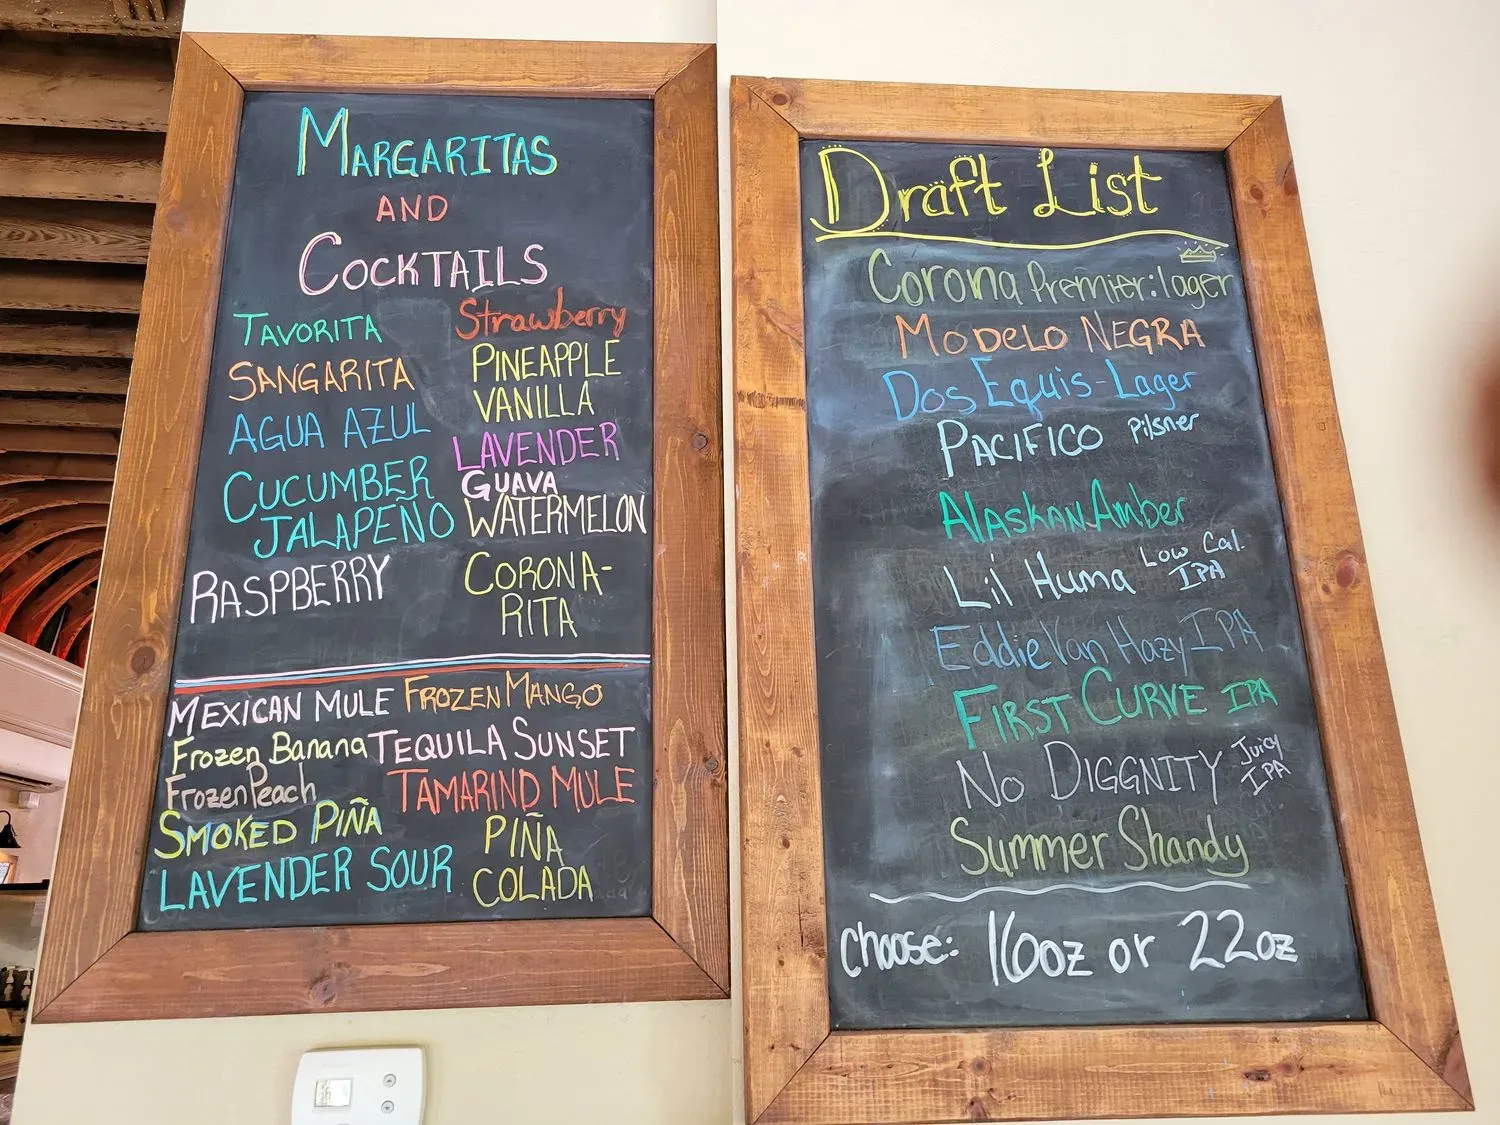 MARGARITAS
AND
COCKTAILS
TAVORITA
SANGARITA
AGUA AZUL
CUCUMBER
JALAPEÑO
RASPBERRY
Strawberry
PINEAPPLE
VANILLA
LAVENDER
GUAVA
WATERMELON
CORONA-
RITA
MEXICAN MULE
Frozen Banana
Frozen Peach
SMOKED PIÑA
LAVENDER SOUR
FROZEN MANGO
TEQUILA SUNSET
TAMARIND MULE
PIÑA
COLADA
Draft List
Corona Premier: lager
MODELO NEGRA
Dos Equis-Lager
PACIFICO Pilsner
Alaskan Amber
Lil Huma Low Cal.
IPA
Eddie Van Hazy IPA
FIRST CURVE IPA
No DIGGNITY Juicy
IPA
Summer Shandy
choose: 16oz or 22oz